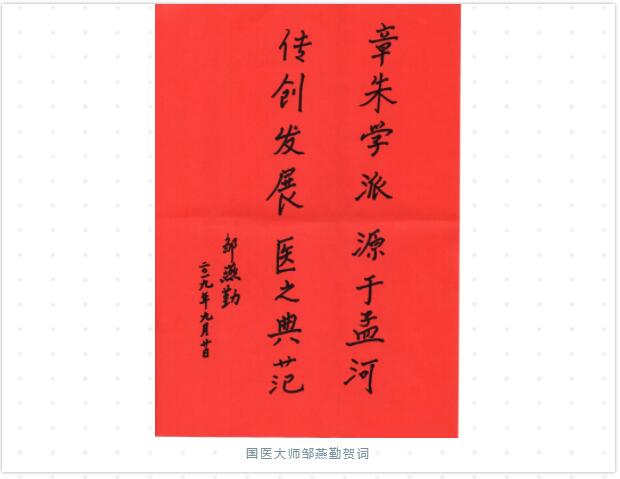 章朱学派 源于孟河
传创发展 医之典范
邹燕勤
二〇一九年九月廿日
国医大师邹燕勤贺词